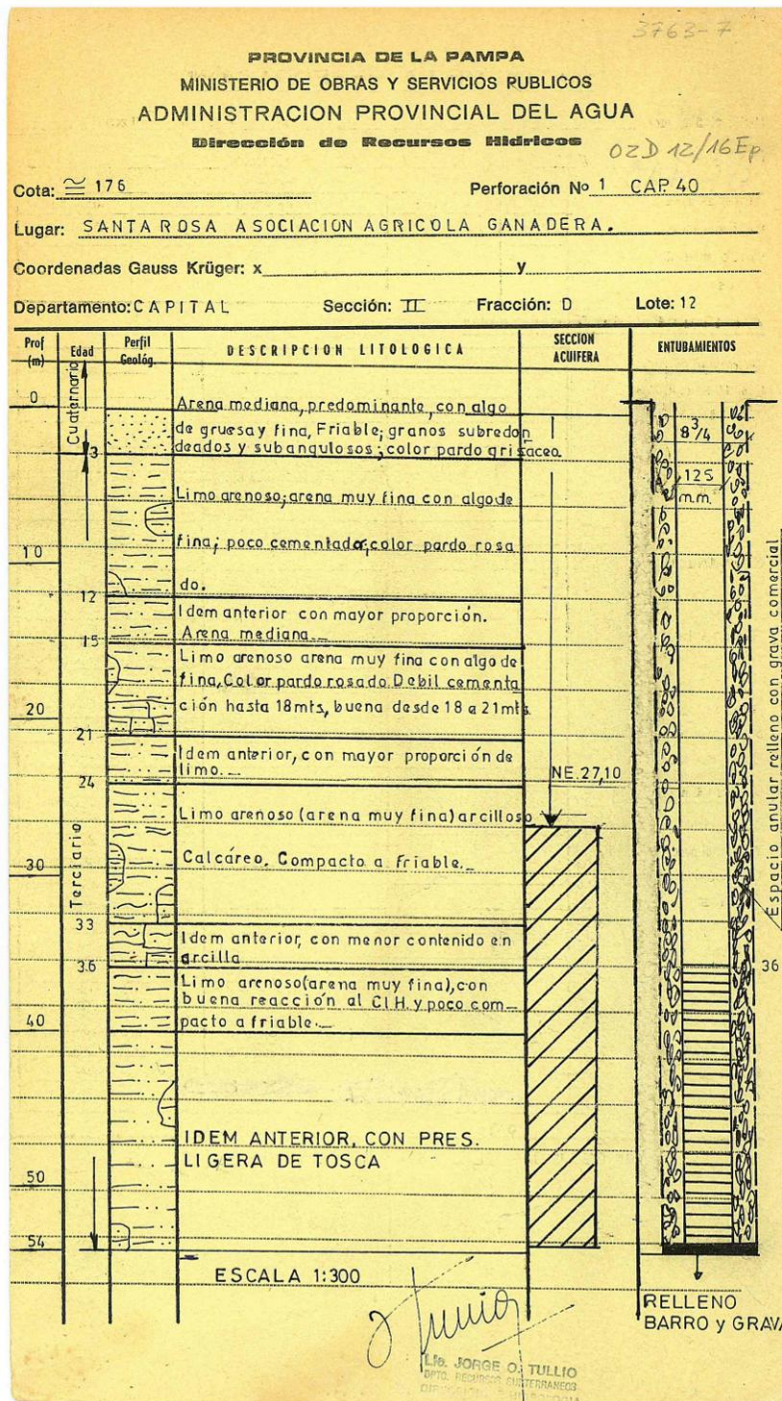 3763-7
PROVINCIA DE LA PAMPA
MINISTERIO DE OBRAS Y SERVICIOS PUBLICOS
ADMINISTRACION PROVINCIAL DEL AGUA
Dirección de Recursos Hídricos
OZD 12/16 Ep
Cota: ≅ 176
Perforación Nº 1 CAP. 40
Lugar: SANTA ROSA ASOCIACION AGRICOLA GANADERA.
Coordenadas Gauss Krüger: x y
Departamento: CAPITAL Sección: II Fracción: D Lote: 12
Prof (m)
Edad
Perfil Geológ.
DESCRIPCION LITOLOGICA
SECCION ACUIFERA
ENTUBAMIENTOS
0
Cuaternario
3
Arena mediana, predominante, con algo
de gruesa y fina, Friable; granos subredon
deados y subangulosos; color pardo grisaceo.
8 3/4
125
m.m.
Limo arenoso; arena muy fina con algo de
fina; poco cementado; color pardo rosa
do.
10
12
Idem anterior con mayor proporción.
Arena mediana._
15
Limo arenoso arena muy fina con algo de
fina, Color pardo rosado. Debil cementa
ción hasta 18mts, buena desde 18 a 21mts
20
21
Idem anterior, con mayor proporción de
limo._
24
NE. 27,10
Limo arenoso (arena muy fina) arcilloso
Calcáreo. Compacto a friable._
30
Terciario
33
Idem anterior, con menor contenido en
arcilla
36
36
Limo arenoso (arena muy fina), con
buena reacción al ClH. y poco com_
pacto a friable._
40
IDEM ANTERIOR, CON PRES.
LIGERA DE TOSCA
50
54
Espacio anular relleno con grava comercial
ESCALA 1:300
RELLENO
BARRO y GRAVA
Lic. JORGE O. TULLIO
DPTO. RECURSOS SUBTERRANEOS